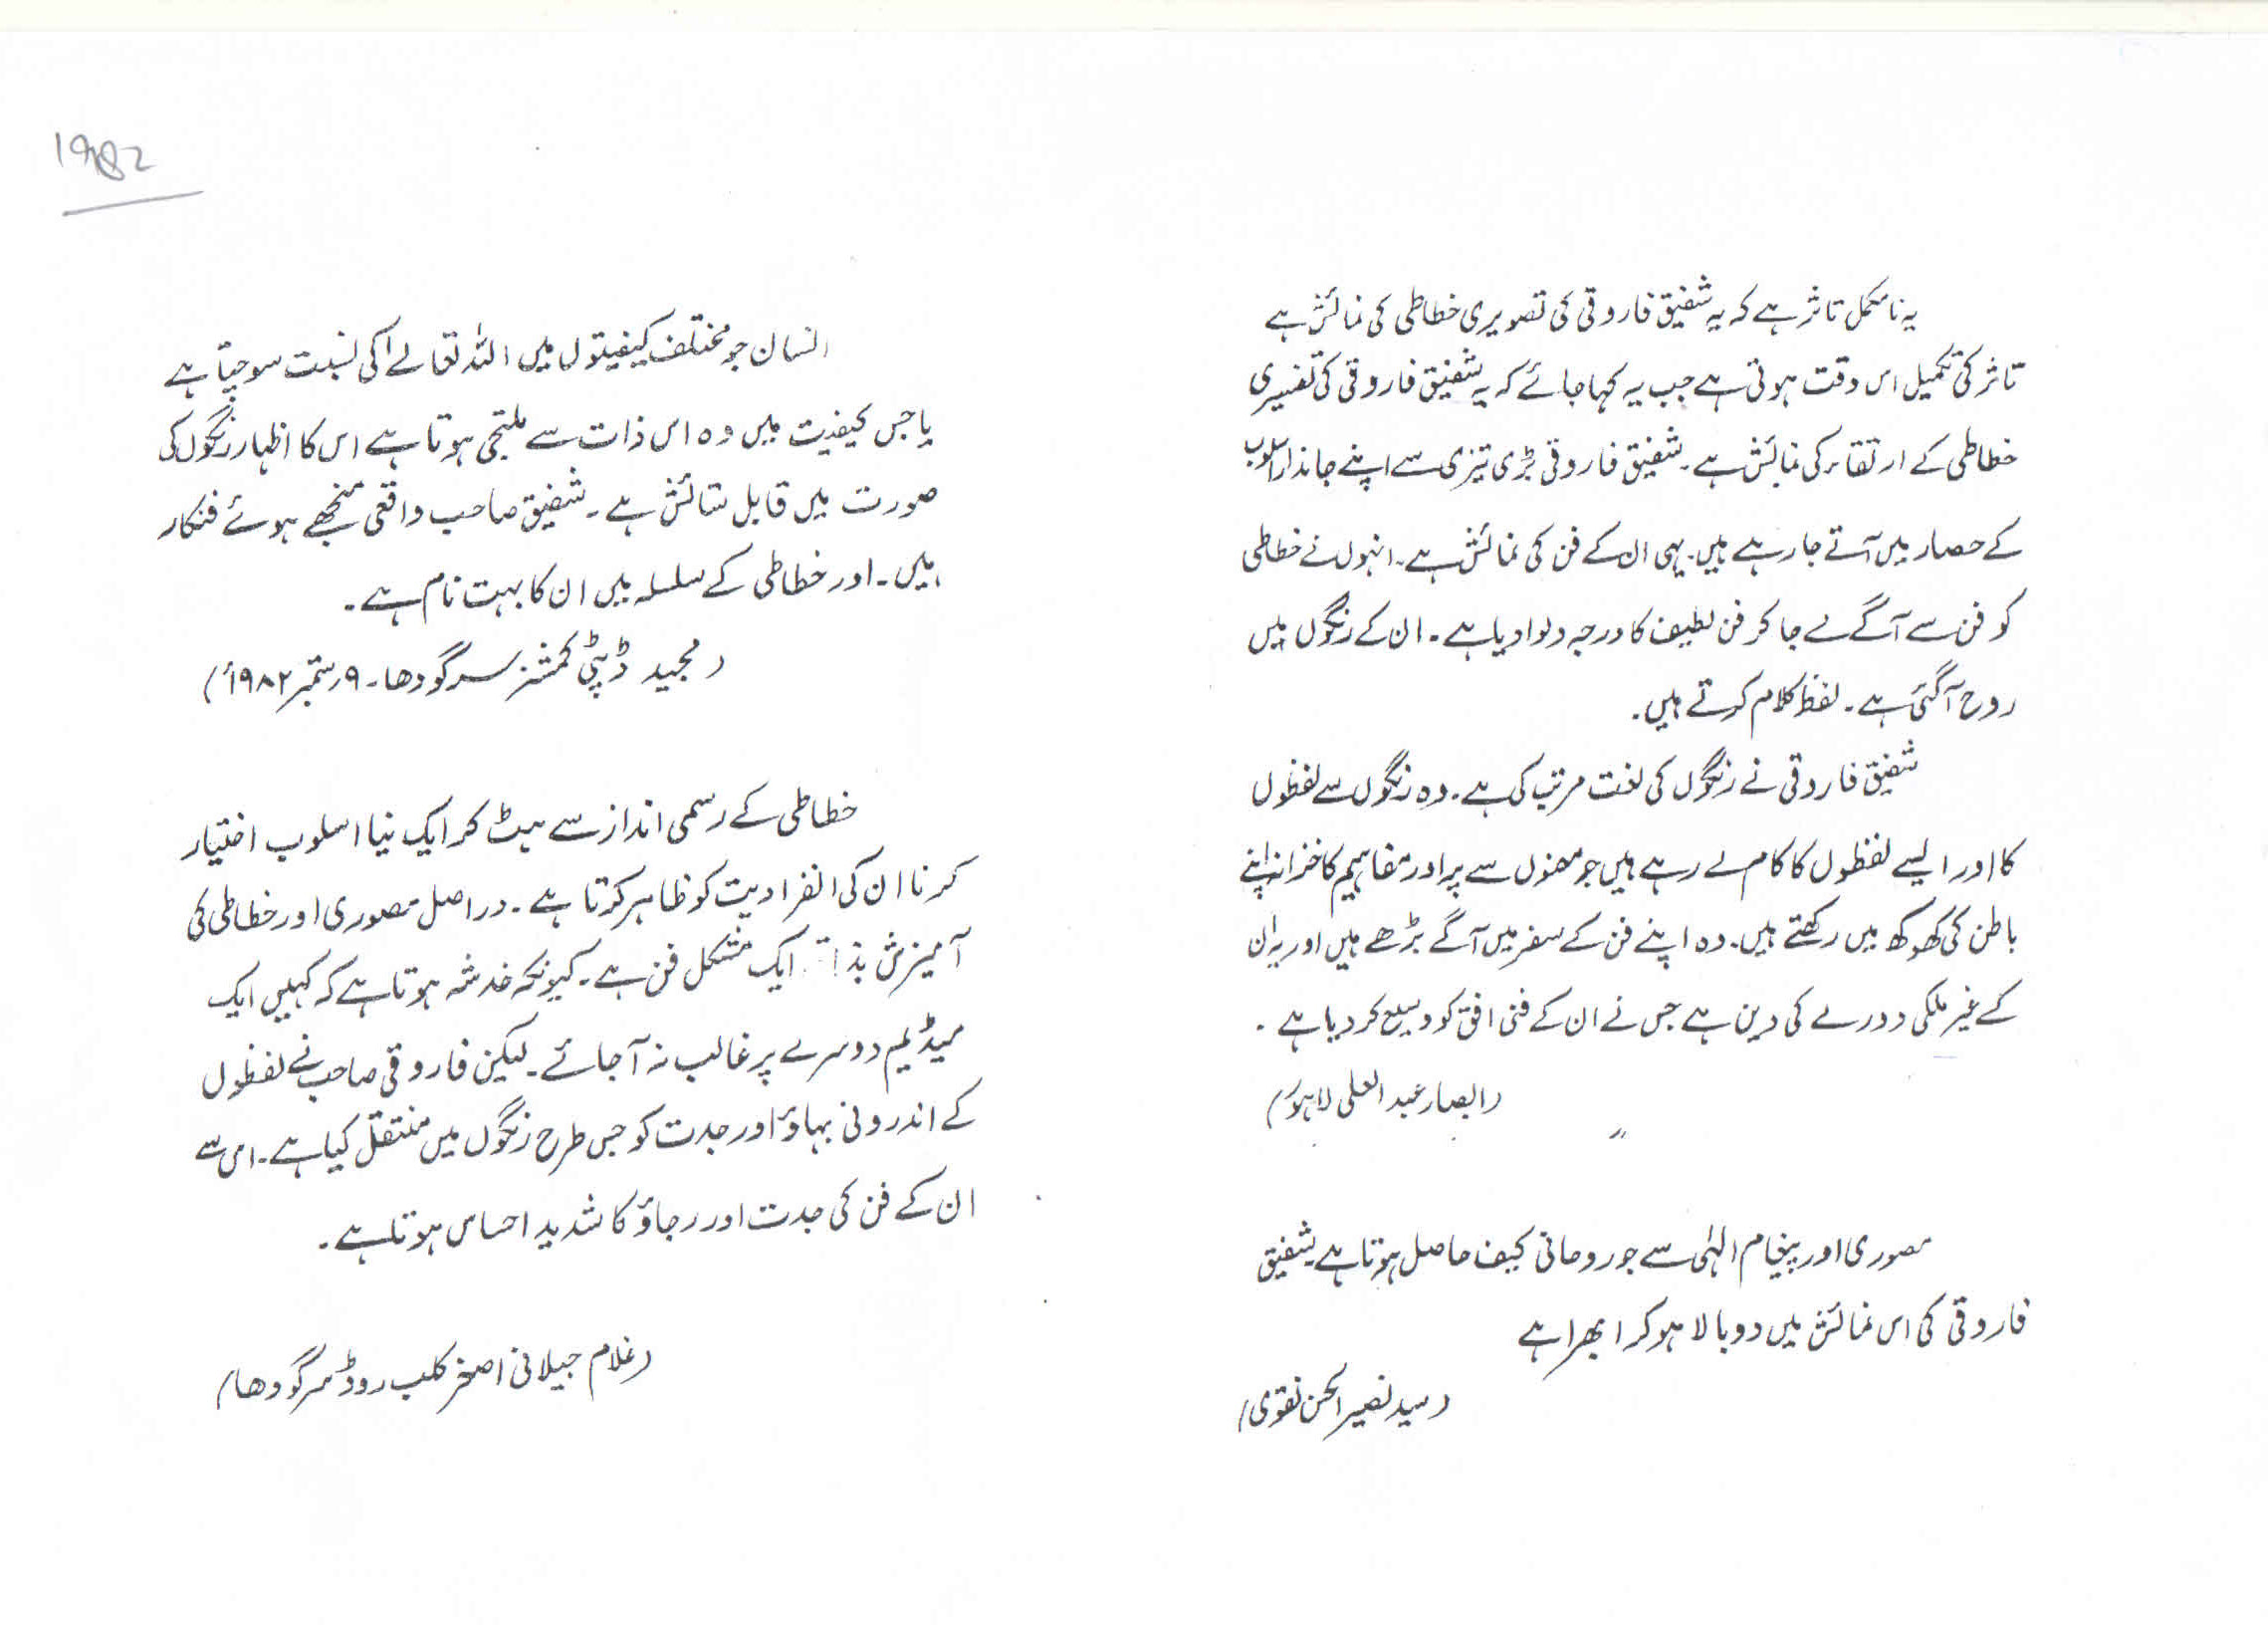 1982
یہ نامکمل تاثر ہے کہ یہ شفیق فاروقی کی تصویری خطاطی کی نمائش ہے
تاثر کی تکمیل اس وقت ہوتی ہے جب یہ کہا جائے کہ یہ شفیق فاروقی کی تفسیری
خطاطی کے ارتقاء کی نمائش ہے۔ شفیق فاروقی بڑی تیزی سے اپنے جاندار اسلوب
کے حصار میں آتے جا رہے ہیں۔ یہی ان کے فن کی نمائش ہے۔ انہوں نے خطاطی
کو فن سے آگے لے جا کر فن لطیف کا درجہ دلوا دیا ہے۔ ان کے رنگوں میں
روح آگئی ہے۔ لفظ کلام کرتے ہیں۔
شفیق فاروقی نے رنگوں کی لغت مرتب کی ہے۔ وہ رنگوں سے لفظوں
کا اور ایسے لفظوں کا کام لے رہے ہیں جو معنوں سے پر اور مفاہیم کا خزانہ اپنے
باطن کی کھوکھ میں رکھتے ہیں۔ وہ اپنے فن کے سفر میں آگے بڑھے ہیں اور یہ ان
کے غیر ملکی دورے کی دین ہے جس نے ان کے فنی افق کو وسیع کر دیا ہے۔
(ابصار عبد العلی لاہور)
مصوری اور پیغام الہٰی سے جو روحانی کیف حاصل ہوتا ہے شفیق
فاروقی کی اس نمائش میں دوبالا ہو کر ابھرا ہے
(سید نصیر الحسن نقوی)
انسان جو مختلف کیفیتوں میں اللہ تعالےٰ کی نسبت سوچتا ہے
یا جس کیفیت میں وہ اس ذات سے ملتجی ہوتا ہے اس کا اظہار رنگوں کی
صورت میں قابل ستائش ہے۔ شفیق صاحب واقعی منجھے ہوئے فنکار
ہیں۔ اور خطاطی کے سلسلہ میں ان کا بہت نام ہے۔
(مجید ڈپٹی کمشنر سرگودھا۔ ۹ ستمبر ۱۹۸۲ء)
خطاطی کے رسمی انداز سے ہٹ کر ایک نیا اسلوب اختیار
کرنا ان کی انفرادیت کو ظاہر کرتا ہے۔ دراصل مصوری اور خطاطی کی
آمیزش بذات ایک مشکل فن ہے۔ کیونکہ خدشہ ہوتا ہے کہ کہیں ایک
میڈیم دوسرے پر غالب نہ آ جائے۔ لیکن فاروقی صاحب نے لفظوں
کے اندرونی بہاؤ اور جدت کو جس طرح رنگوں میں منتقل کیا ہے۔ اس سے
ان کے فن کی جدت اور رچاؤ کا شدید احساس ہوتا ہے۔
(غلام جیلانی اصغر کلب روڈ سرگودھا)